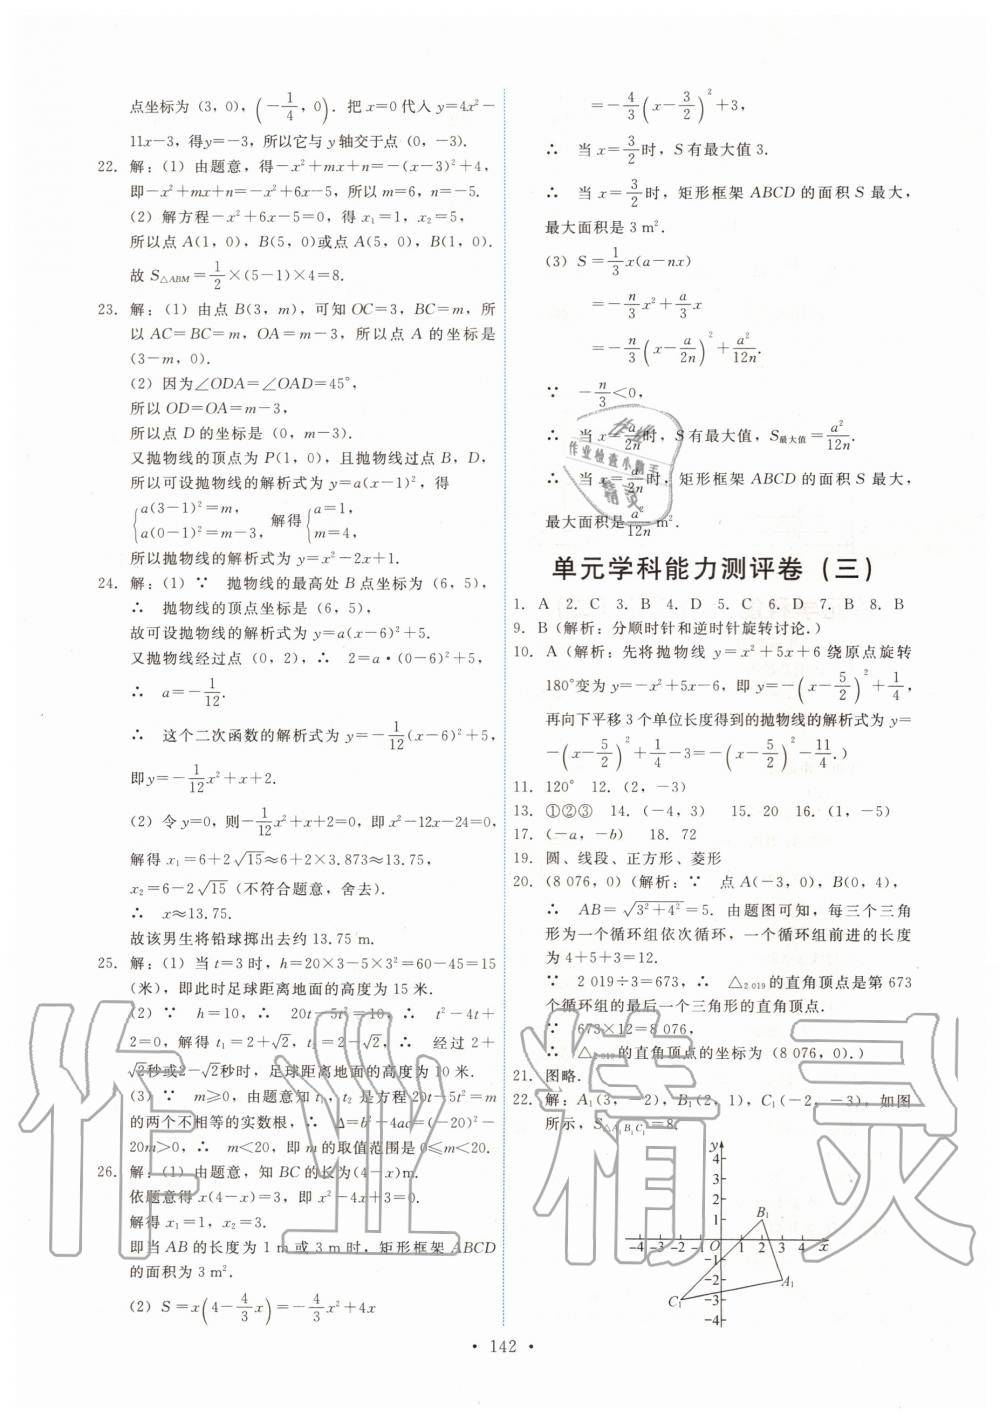 点坐标为 (3, 0), (−1/4, 0). 把 x=0 代入 y=4x²−
11x−3, 得y=−3, 所以它与 y 轴交于点 (0, −3).
22. 解: (1) 由题意, 得−x²+mx+n=−(x−3)²+4,
即−x²+mx+n=−x²+6x−5, 所以 m=6, n=−5.
(2) 解方程−x²+6x−5=0, 得 x₁=1, x₂=5,
所以点 A(1, 0), B(5, 0)或点 A(5, 0), B(1, 0).
故 S△ABM=1/2×(5−1)×4=8.
23. 解: (1) 由点 B(3, m), 可知 OC=3, BC=m, 所
以 AC=BC=m, OA=m−3, 所以点 A 的坐标是
(3−m, 0).
(2) 因为∠ODA=∠OAD=45°,
所以 OD=OA=m−3,
所以点 D 的坐标是 (0, m−3).
又抛物线的顶点为 P(1, 0), 且抛物线过点 B, D,
所以可设抛物线的解析式为 y=a(x−1)², 得
{a(3−1)²=m, a(0−1)²=m−3, 解得 {a=1, m=4,
所以抛物线的解析式为 y=x²−2x+1.
24. 解: (1) ∵ 抛物线的最高处 B 点坐标为 (6, 5),
∴ 抛物线的顶点坐标是 (6, 5),
故可设抛物线的解析式为 y=a(x−6)²+5.
又抛物线经过点 (0, 2), ∴ 2=a·(0−6)²+5,
∴ a=−1/12.
∴ 这个二次函数的解析式为 y=−1/12(x−6)²+5,
即y=−1/12x²+x+2.
(2) 令 y=0, 则−1/12x²+x+2=0, 即x²−12x−24=0,
解得 x₁=6+2√15≈6+2×3.873≈13.75,
x₂=6−2√15 (不符合题意, 舍去).
∴ x≈13.75.
故该男生将铅球掷出去约 13.75 m.
25. 解: (1) 当 t=3 时, h=20×3−5×3²=60−45=15
(米), 即此时足球距离地面的高度为 15 米.
(2) ∵ h=10, ∴ 20t−5t²=10, ∴ t²−4t+
2=0, 解得 t₁=2+√2, t₂=2−√2, ∴ 经过 2+
√2秒或2−√2秒时, 足球距离地面的高度为 10 米.
(3) ∵ m≥0, 由题意知 t₁, t₂ 是方程 20t−5t²=m
的两个不相等的实数根, ∴ Δ=b²−4ac=(−20)²−
20m>0, ∴ m<20, 即 m的取值范围是 0≤m<20.
26. 解: (1) 由题意, 知 BC 的长为(4−x)m.
依题意得 x(4−x)=3, 即 x²−4x+3=0.
解得 x₁=1, x₂=3.
即当 AB 的长度为 1 m 或 3 m 时, 矩形框架 ABCD
的面积为 3 m².
(2) S=x(4−4/3x)=−4/3x²+4x
=−4/3(x−3/2)²+3,
∴ 当 x=3/2时, S有最大值 3.
∴ 当 x=3/2 时, 矩形框架 ABCD 的面积 S 最大,
最大面积是 3 m².
(3) S=1/3x(a−nx)
=−n/3x²+a/3x
=−n/3(x−a/2n)²+a²/12n.
∵ −n/3<0,
∴ 当 x=a/2n时, S有最大值, S最大值=a²/12n.
∴ 当 x=a/2n时, 矩形框架 ABCD 的面积 S 最大,
最大面积是a²/12n m².
单元学科能力测评卷 (三)
1. A 2. C 3. B 4. D 5. C 6. D 7. B 8. B
9. B (解析: 分顺时针和逆时针旋转讨论.)
10. A (解析: 先将抛物线 y=x²+5x+6 绕原点旋转
180°变为 y=−x²+5x−6, 即 y=−(x−5/2)²+1/4,
再向下平移 3 个单位长度得到的抛物线的解析式为 y=
−(x−5/2)²+1/4−3=−(x−5/2)²−11/4.)
11. 120° 12. (2, −3)
13. ①②③ 14. (−4, 3) 15. 20 16. (1, −5)
17. (−a, −b) 18. 72
19. 圆、线段、正方形、菱形
20. (8 076, 0) (解析: ∵ 点 A(−3, 0), B(0, 4),
∴ AB=√3²+4²=5. 由题图可知, 每三个三角
形为一个循环组依次循环, 一个循环组前进的长度
为 4+5+3=12.
∵ 2 019÷3=673, ∴ △2 019的直角顶点是第 673
个循环组的最后一个三角形的直角顶点.
∵ 673×12=8 076,
∴ △2 019的直角顶点的坐标为 (8 076, 0).)
21. 图略.
22. 解: A₁(3, −2), B₁(2, 1), C₁(−2, −3), 如图
所示, S△A₁B₁C₁=8.
y
4
3
2
1
B₁
−4 −3 −2 −1 O 1 2 3 4 x
−1
−2
A₁
C₁
−3
−4
· 142 ·
作业精灵
作业检查小助手
精灵